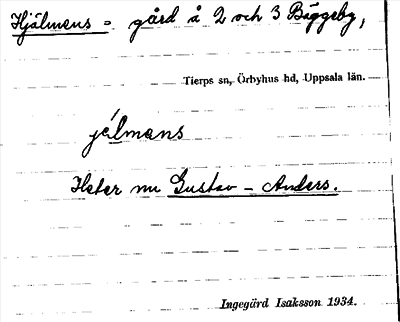 Hjälmens = gård å 2 och 3 Båggeby,
Tierps sn, Örbyhus hd, Uppsala län.
jélmens
Heter nu Gustav – Anders.
Ingegärd Isaksson 1934.